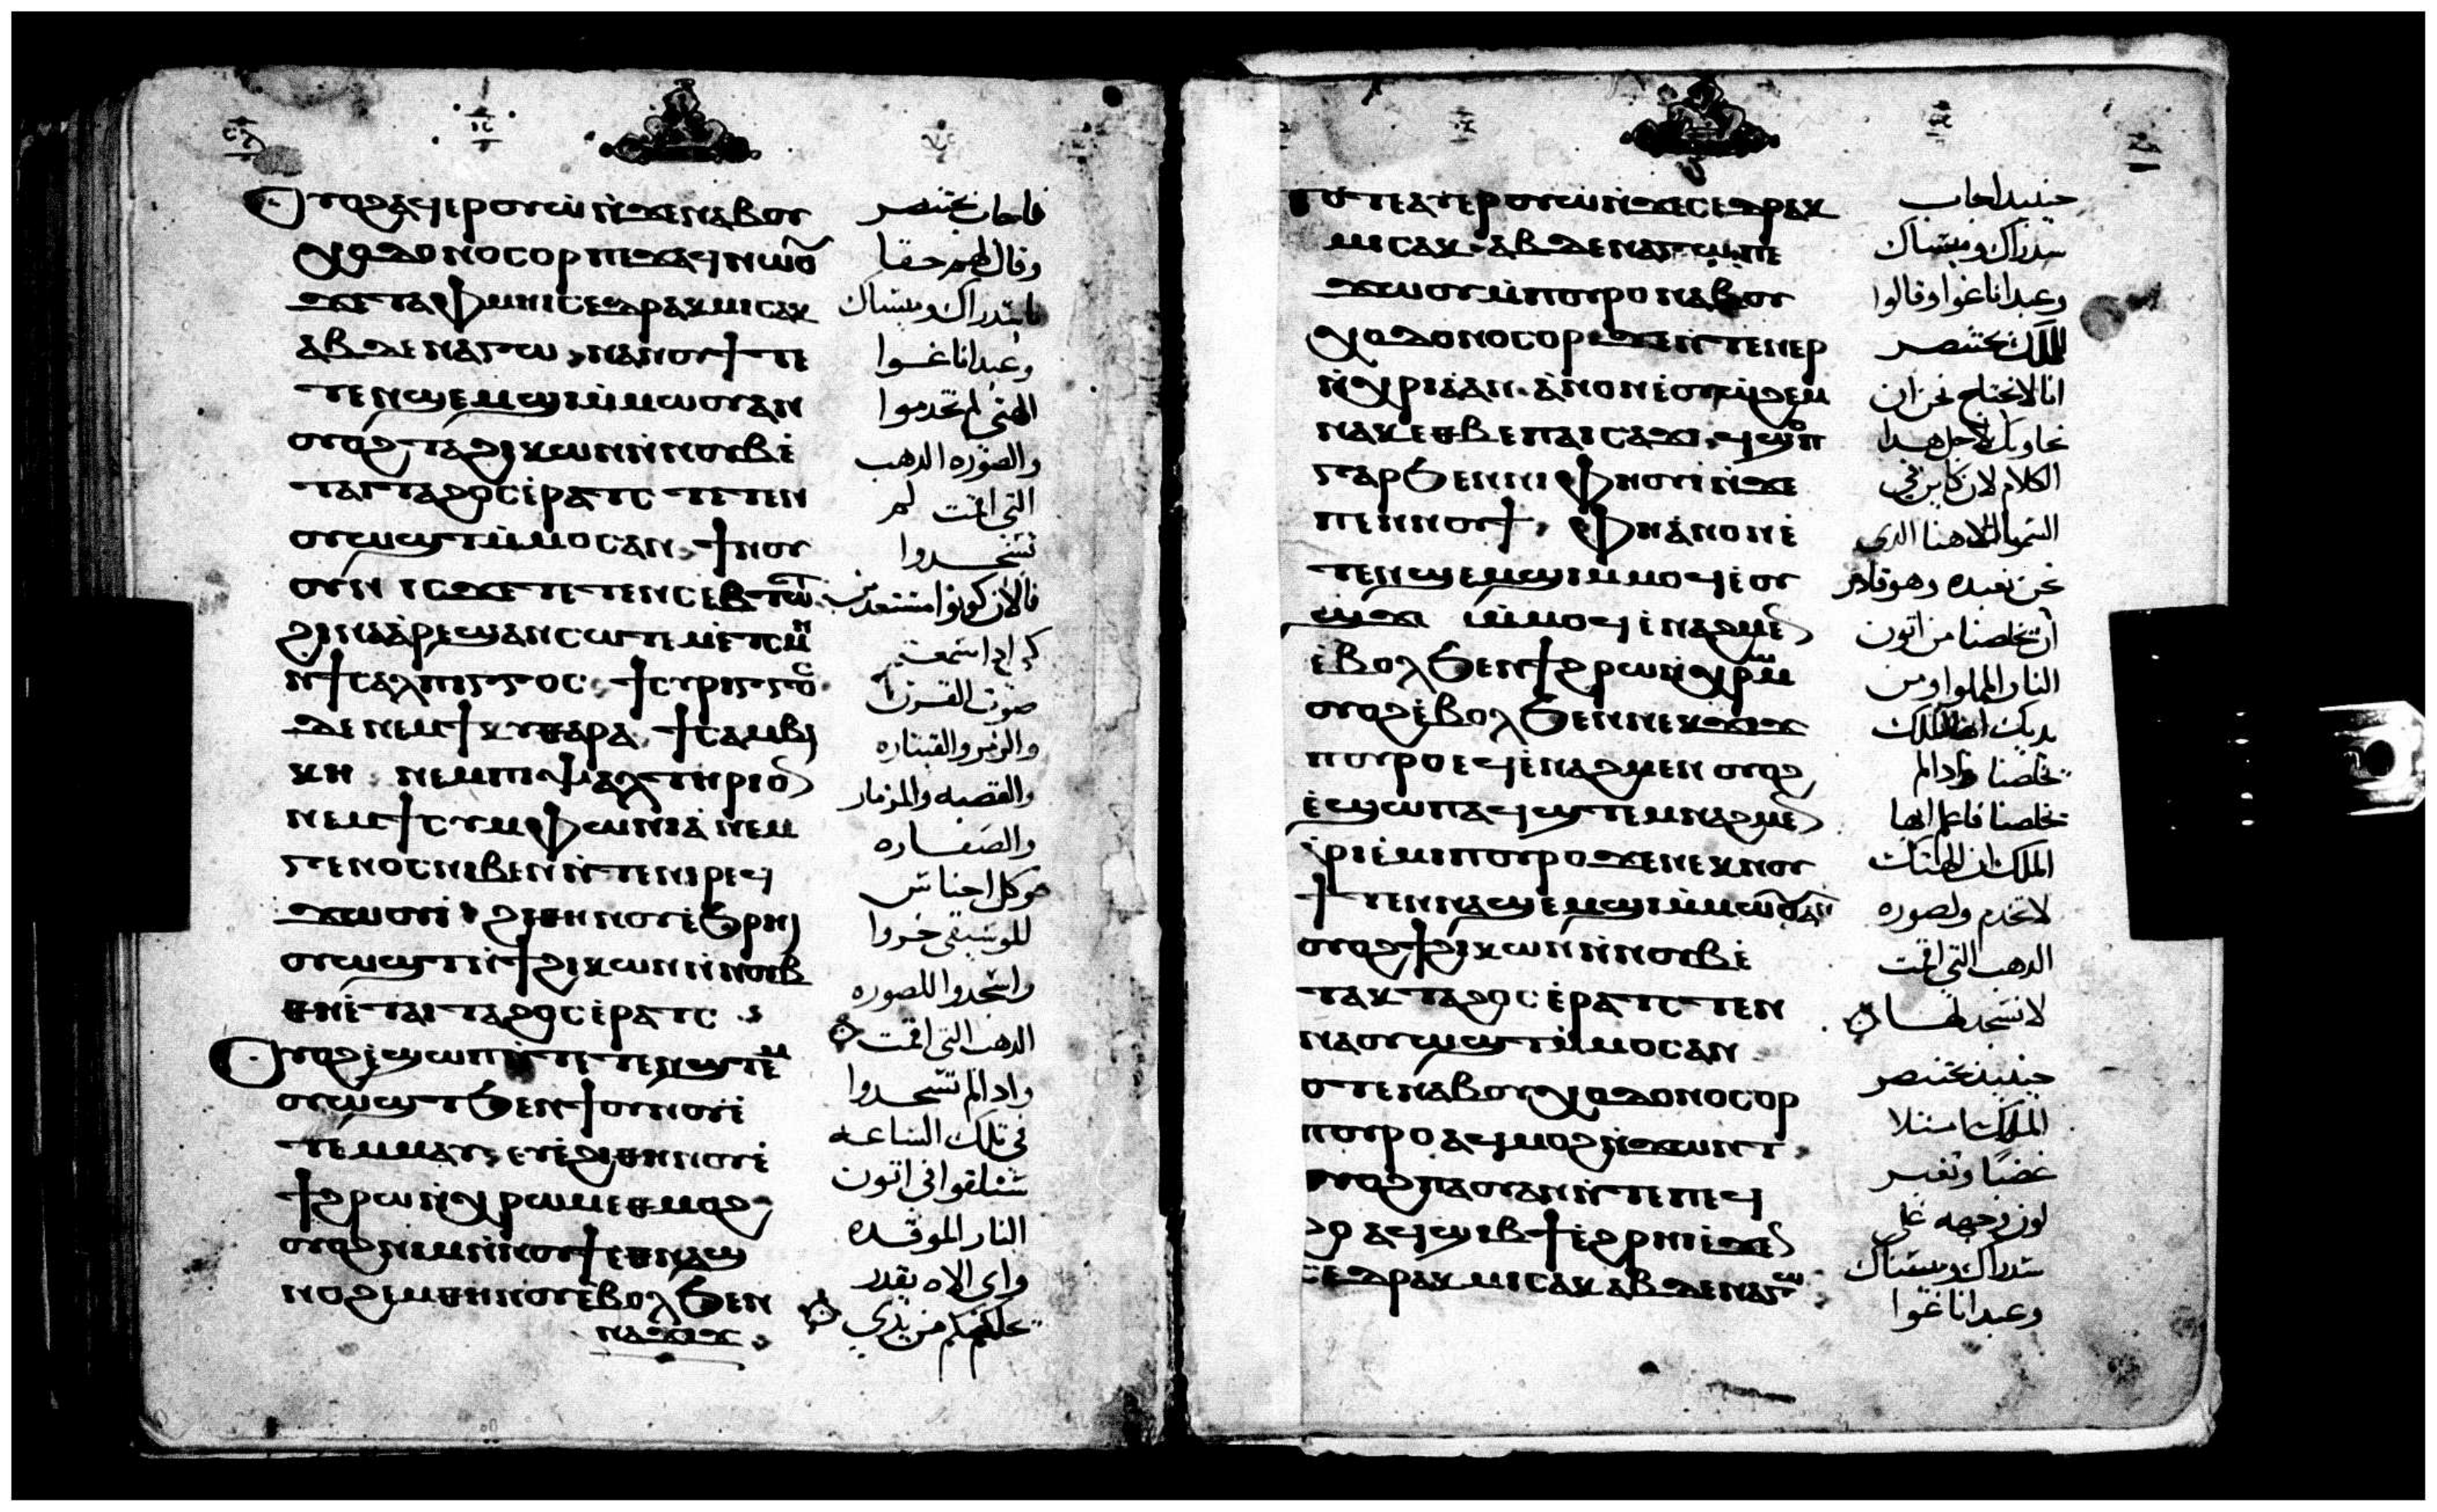 ⲟⲩⲟϩ ⲁϥⲉⲣⲟⲩⲱ ⲛ̀ϫⲉ ⲛⲁⲃⲟⲩ
ⲭⲟⲇⲟⲛⲟⲥⲟⲣ ⲡⲉϫⲁϥ ⲛⲱⲟⲩ
ϫⲉ ⲧⲁⲫⲙⲏⲓ ⲥⲉⲇⲣⲁⲭ ⲙⲓⲥⲁⲭ
ⲁⲃⲇⲉⲛⲁⲅⲱ ⲛⲁⲛⲟⲩϯ ⲧⲉ
ⲧⲉⲛϣⲉⲙϣⲓ ⲙ̀ⲙⲱⲟⲩ ⲁⲛ
ⲟⲩⲟϩ ⲧⲁϩⲓⲕⲱⲛ ⲛ̀ⲛⲟⲩⲃ ⲉ̀
ⲧⲁⲓⲧⲁϩⲟⲥ ⲉ̀ⲣⲁⲧⲥ ⲧⲉⲧⲉⲛ
ⲟⲩⲱϣⲧ ⲙ̀ⲙⲟⲥ ⲁⲛ ϯⲛⲟⲩ
ⲟⲩⲛ ⲓⲥϫⲉ ⲧⲉⲧⲉⲛⲥⲉⲃⲧⲱⲧ
ϩⲓⲛⲁ ⲁ̀ⲣⲉϣⲁⲛⲥⲱⲧⲉⲙ ⲉ̀ⲧⲥⲙⲏ
ⲛ̀ϯⲥⲁⲗⲡⲓⲅⲅⲟⲥ ϯⲥⲩⲣⲓⲅⲅⲟⲥ
ⲇⲉ ⲛⲉⲙ ϯⲕⲩⲑⲁⲣⲁ ϯⲥⲁⲙⲃⲓ
ⲕⲏ ⲛⲉⲙ ⲡⲓⲯⲁⲗⲧⲏⲣⲓⲟⲛ
ⲛⲉⲙ ϯⲥⲩⲙⲫⲱⲛⲓⲁ ⲛⲉⲙ
ⲅⲉⲛⲟⲥ ⲛⲓⲃⲉⲛ ⲛ̀ⲧⲉ ⲛⲓⲣⲉϥ
ϫⲱ ⲟⲩⲛⲓ ϩⲓⲑⲏⲛⲟⲩ ⲉ̀ϧⲣⲏⲓ
ⲟⲩⲱϣⲧ ⲛ̀ϯϩⲓⲕⲱⲛ ⲛ̀ⲛⲟⲩⲃ
ⲑⲏ ⲉ̀ⲧⲁⲓⲧⲁϩⲟⲥ ⲉ̀ⲣⲁⲧⲥ
ⲟⲩⲟϩ ⲉ̀ϣⲱⲡ ⲛ̀ⲧⲉⲧⲉⲛϣⲧⲉⲙ
ⲟⲩⲱϣⲧ ϧⲉⲛ ϯⲟⲩⲛⲟⲩ ⲉ̀
ⲧⲉⲙⲙⲁⲩ ⲉⲩⲉ̀ϩⲓⲑⲏⲛⲟⲩ ⲉ̀
ϯϩⲣⲱ ⲛ̀ⲭⲣⲱⲙ ⲉⲑⲙⲟϩ
ⲟⲩⲟϩ ⲛⲓⲙ ⲛ̀ⲛⲟⲩϯ ⲉⲑⲛⲁϣ
ⲛⲟϩⲉⲙ ⲑⲏⲛⲟⲩ ⲉ̀ⲃⲟⲗ ϧⲉⲛ
ⲛⲁϫⲓϫ
فاجاب بختنصر
وقال لهم حقا
يا سدراك وميساك
وعبداناغوا
الهتي لم تخدموا
والصوره الدهب
التي اقمت لم
تسجدوا
فالان كونوا مستعدين
كي ادا سمعتم
صوت القرن
والزمر والقيتاره
والقصبه والمزمار
والصفاره
وكل اجناس
الموسيقي خروا
واسجدوا للصوره
الدهب التي اقمت
وادا لم تسجدوا
في تلك الساعه
ستلقوا في اتون
النار الموقده
واي الاه يقدر
يخلصكم من يدي
ⲧⲟⲧⲉ ⲁⲩⲉⲣⲟⲩⲱ ⲛ̀ϫⲉ ⲥⲉⲇⲣⲁⲭ
ⲙⲓⲥⲁⲭ ⲁⲃⲇⲉⲛⲁⲅⲱ ⲡⲉ
ϫⲱⲟⲩ ⲙ̀ⲡⲟⲩⲣⲟ ⲛⲁⲃⲟⲩ
ⲭⲟⲇⲟⲛⲟⲥⲟⲣ ϫⲉ ⲛ̀ⲧⲉⲛⲉⲣ
ⲛ̀ⲭⲣⲓⲁ ⲁⲛ ⲁ̀ⲛⲟⲛ ⲉ̀ⲟⲩⲱϩⲉⲙ
ⲛⲁⲕ ⲉⲑⲃⲉ ⲡⲁⲓⲥⲁϫⲓ ϥϣⲟⲡ
ⲅⲁⲣ ϧⲉⲛ ⲛⲓⲫⲏⲟⲩⲓ ⲛ̀ϫⲉ
ⲡⲉⲛⲛⲟⲩϯ ⲫⲏ ⲁ̀ⲛⲟⲛ ⲉ̀
ⲧⲉⲛϣⲉⲙϣⲓ ⲙ̀ⲙⲟϥ ⲉ̀ⲟⲩ
ⲟⲛϣϫⲟⲙ ⲙ̀ⲙⲟϥ ⲉ̀ⲛⲁϩⲙⲉⲛ
ⲉ̀ⲃⲟⲗ ϧⲉⲛ ϯϩⲣⲱ ⲛ̀ⲭⲣⲱⲙ
ⲟⲩⲟϩ ⲉ̀ⲃⲟⲗ ϧⲉⲛ ⲛⲉⲕϫⲓϫ
ⲡⲟⲩⲣⲟ ⲉϥⲉ̀ⲛⲁϩⲙⲉⲛ ⲟⲩⲟϩ
ⲉ̀ϣⲱⲡ ⲁϥϣⲧⲉⲙⲛⲁϩⲙⲉⲛ
ⲁ̀ⲣⲓⲉ̀ⲙⲓ ⲡⲟⲩⲣⲟ ϫⲉ ⲛⲉⲕⲛⲟⲩ
ϯ ⲧⲉⲛⲛⲁϣⲉⲙϣⲓ ⲙ̀ⲙⲱⲟⲩ ⲁⲛ
ⲟⲩⲟϩ ϯϩⲓⲕⲱⲛ ⲛ̀ⲛⲟⲩⲃ ⲉ̀
ⲧⲁⲕⲧⲁϩⲟⲥ ⲉ̀ⲣⲁⲧⲥ ⲧⲉⲛ
ⲛⲁⲟⲩⲱϣⲧ ⲙ̀ⲙⲟⲥ ⲁⲛ
ⲧⲟⲧⲉ ⲛⲁⲃⲟⲩⲭⲟⲇⲟⲛⲟⲥⲟⲣ
ⲡⲟⲩⲣⲟ ⲁϥⲙⲟϩ ⲛ̀ϫⲱⲛⲧ
ⲟⲩⲟϩ ⲡⲁⲟⲩⲁⲛ ⲛ̀ⲧⲉ ⲡⲉϥ
ϩⲟ ⲁϥϣⲓⲃϯ ⲉ̀ϩⲣⲏⲓ ⲉ̀ϫⲉⲛ
ⲥⲉⲇⲣⲁⲭ ⲙⲓⲥⲁⲭ ⲁⲃⲇⲉⲛⲁⲅⲱ
حينيد اجاب
سدراك وميساك
وعبداناغوا وقالوا
للملك بختنصر
انا لا نحتاج نحن ان
نجاوبك لاجل هدا
الكلام لان كاين في
السموات الاهنا الدي
نحن نعبده وهو قادر
ان يخلصنا من اتون
النار المملوا ومن
يديك ايها الملك
يخلصنا وادا لم
يخلصنا فاعلم ايها
الملك ان الهتك
لا نخدم ولصوره
الدهب التي اقمت
لا نسجد لها
حينيد بختنصر
الملك امتلا
غضبا وتغير
لون وجهه علي
سدراك وميساك
وعبداناغوا